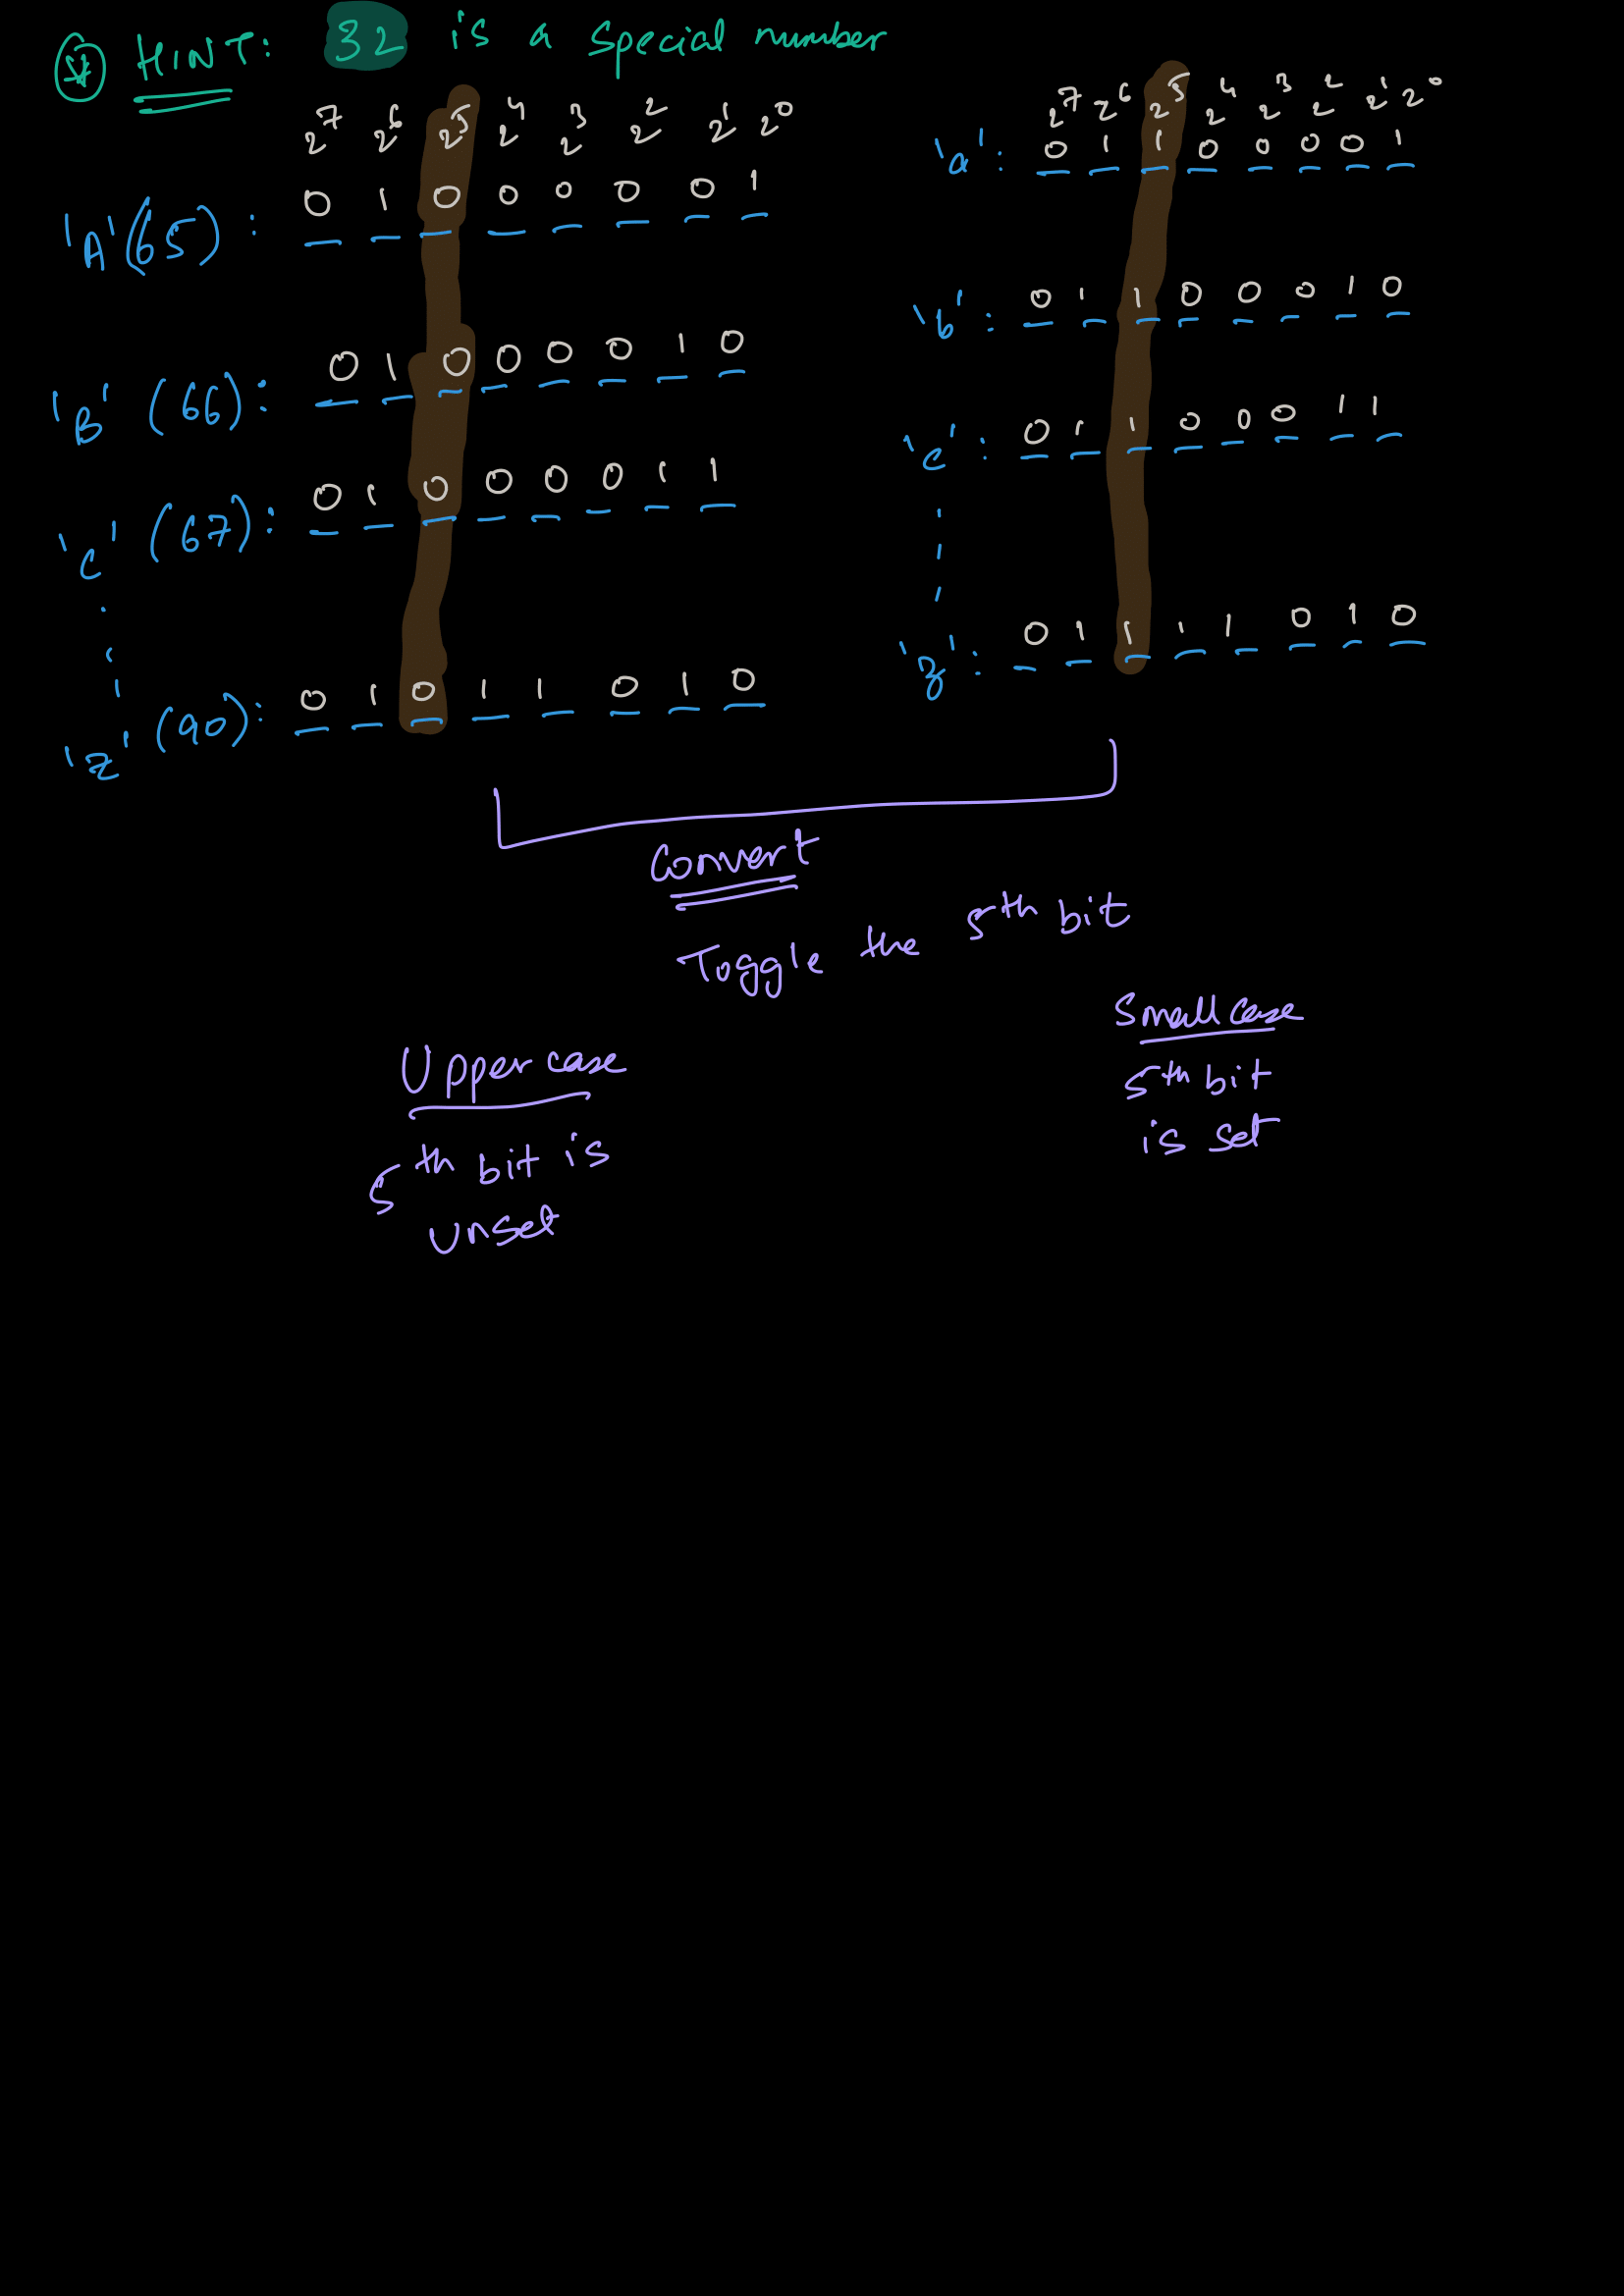 * HINT: 32 is a special number
2^7 2^6 2^5 2^4 2^3 2^2 2^1 2^0
'A' (65): 0 1 0 0 0 0 0 1
'B' (66): 0 1 0 0 0 0 1 0
'C' (67): 0 1 0 0 0 0 1 1
'Z' (90): 0 1 0 1 1 0 1 0
2^7 2^6 2^5 2^4 2^3 2^2 2^1 2^0
'a': 0 1 1 0 0 0 0 1
'b': 0 1 1 0 0 0 1 0
'c': 0 1 1 0 0 0 1 1
'z': 0 1 1 1 1 0 1 0
Convert
Toggle the 5th bit
Upper case
5th bit is
unset
Small case
5th bit
is set